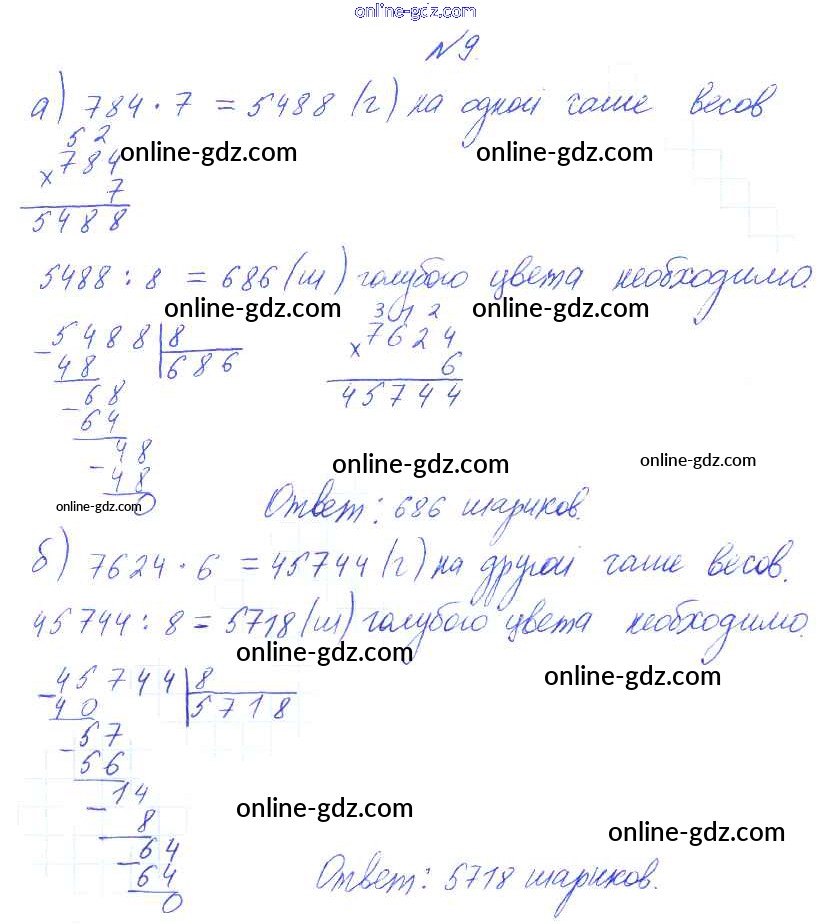 online-gdz.com
№9.
а) 784 · 7 = 5488 (г) на одной чаше весов
52
× 784
online-gdz.com online-gdz.com
7
5488
5488 : 8 = 686 (ш) голубого цвета необходимо.
online-gdz.com online-gdz.com
- 5488 | 8
48
686
- 68
64
- 48
48
0
312
× 7624
6
45744
online-gdz.com online-gdz.com
online-gdz.com
Ответ: 686 шариков.
б) 7624 · 6 = 45744 (г) на другой чаше весов.
45744 : 8 = 5718 (ш) голубого цвета необходимо.
online-gdz.com
online-gdz.com
- 45744 | 8
40
5718
- 57
56
- 14
8
- 64
64
0
online-gdz.com
online-gdz.com
Ответ: 5718 шариков.